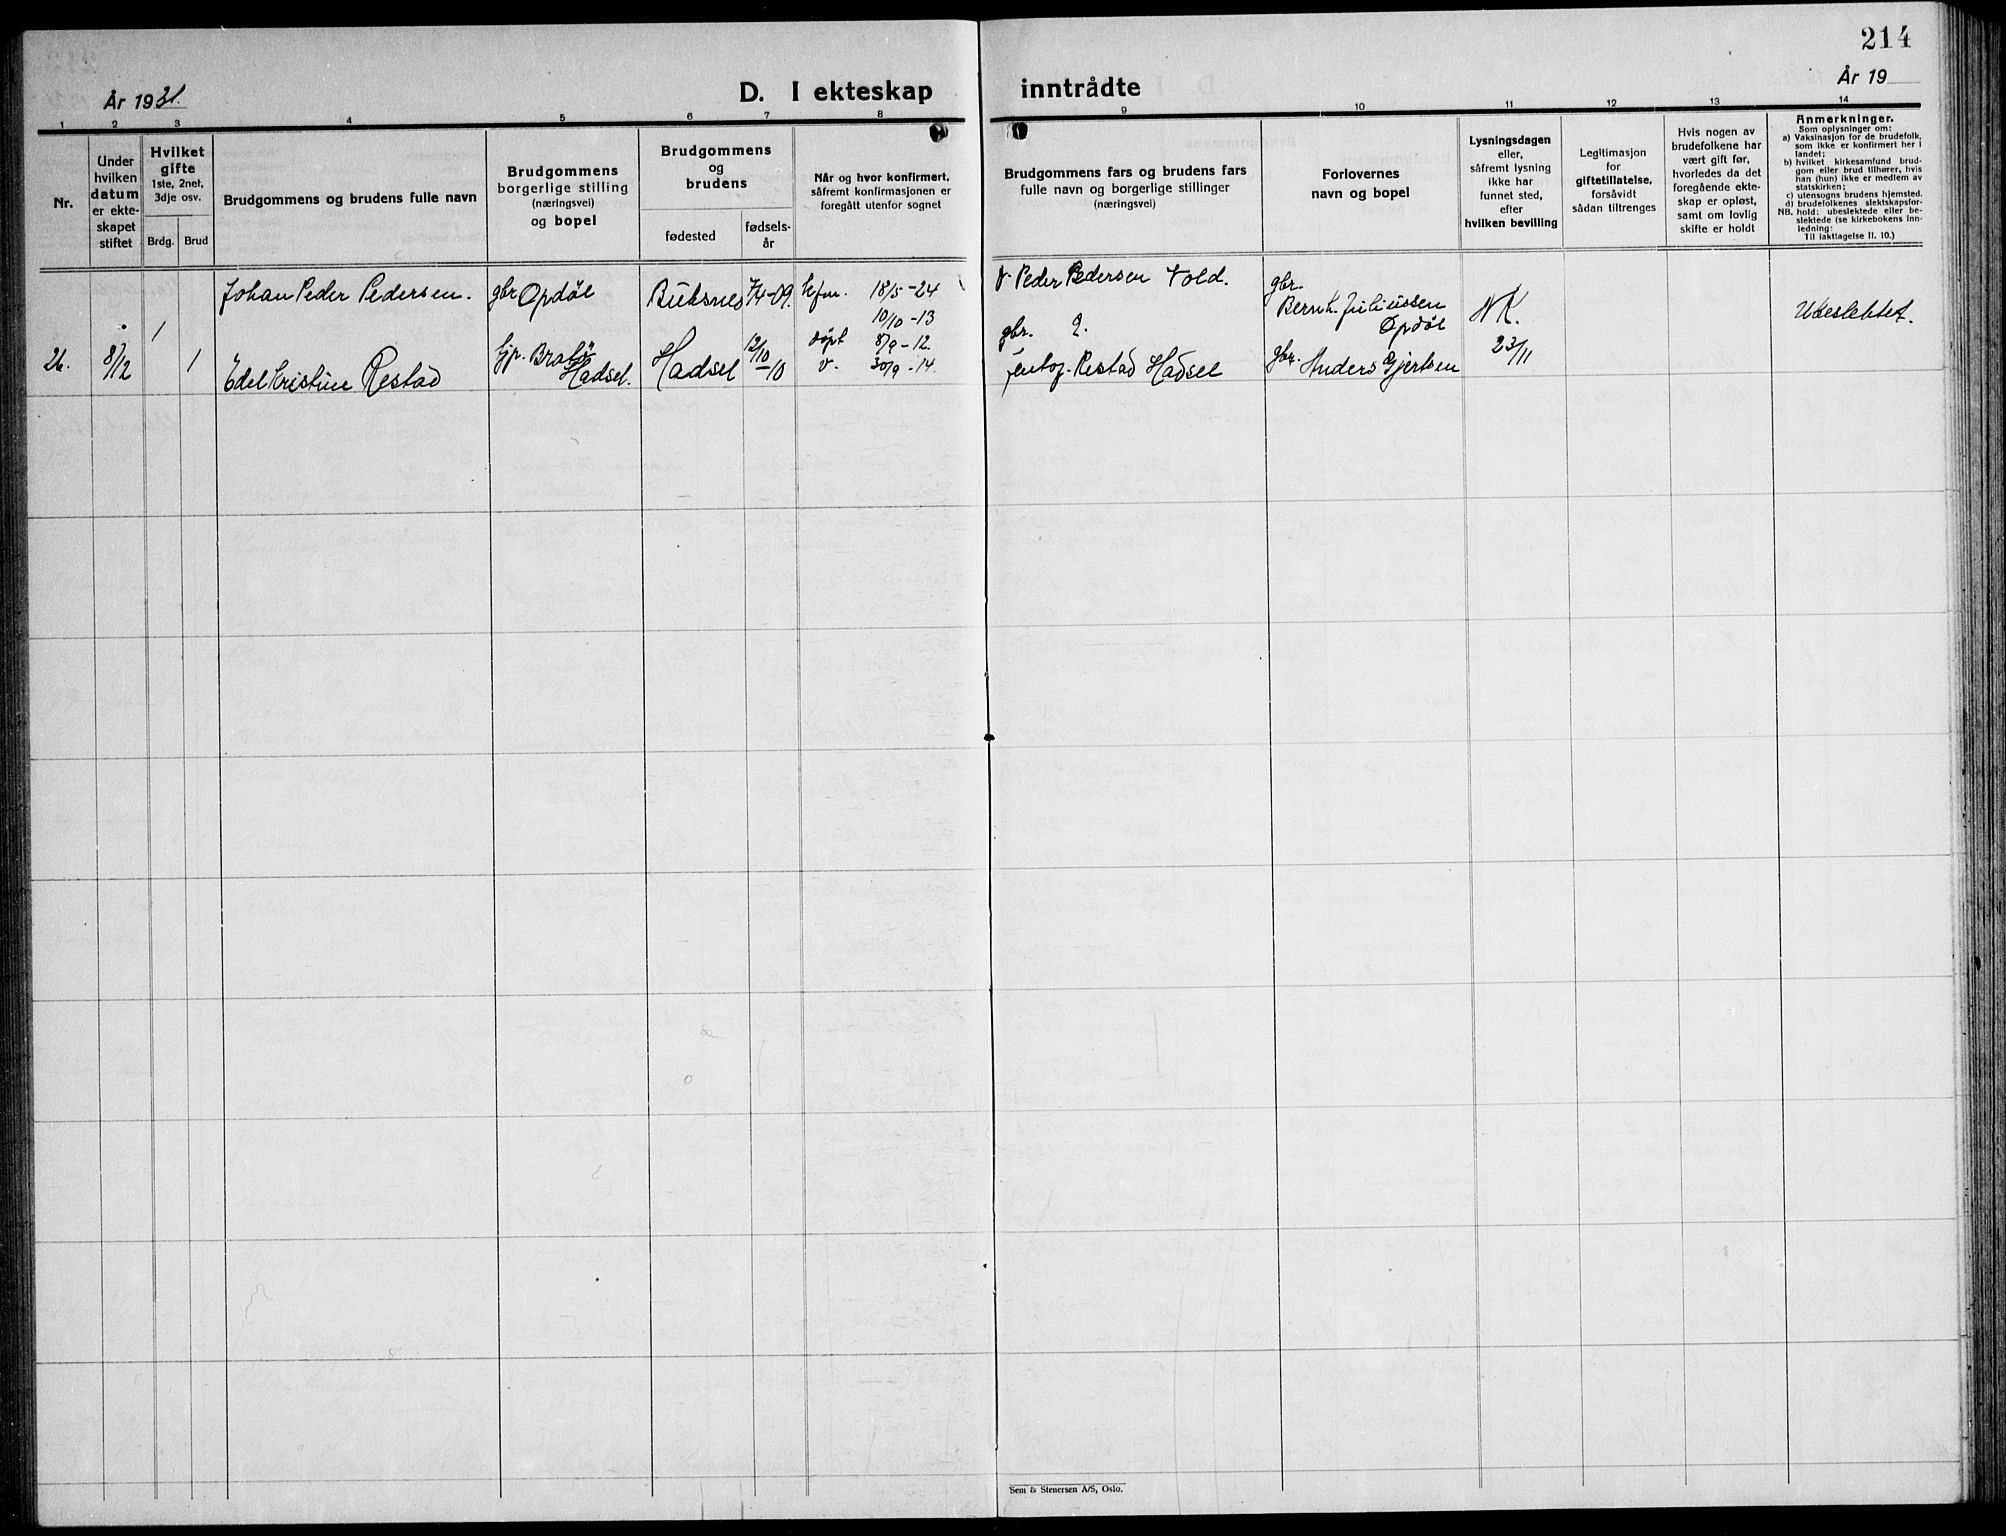 214
År 1931.
D. I ekteskap inntrådte
År 19
1 2 3 4 5 6 7 8 9 10 11 12 13 14
Nr.
Under
hvilken
datum
er ekte-
skapet
stiftet
Hvilket
gifte
1ste, 2net,
3dje osv.
Brdg. Brud
Brudgommens og brudens fulle navn
Brudgommens
borgerlige stilling
(næringsvei)
og bopel
Brudgommens
og
brudens
fødested
fødsels-
år
Når og hvor konfirmert,
såfremt konfirmasjonen er
foregått utenfor sognet
Brudgommens fars og brudens fars
fulle navn og borgerlige stillinger
(næringsvei)
Forlovernes
navn og bopel
Lysningsdagen
eller,
såfremt lysning
ikke har
funnet sted,
efter
hvilken bevilling
Legitimasjon
for
giftetillatelse,
forsåvidt
sådan tiltrenges
Hvis nogen av
brudefolkene har
vært gift før,
hvorledes da det
foregående ekte-
skap er opløst,
samt om lovlig
skifte er holdt
Anmerkninger.
Som oplysninger om:
a) Vaksinasjon for de brudefolk,
som ikke er konfirmert her i
landet;
b) hvilket kirkesamfund brud-
gom eller brud tilhører, hvis
han (hun) ikke er medlem av
statskirken;
c) utensogns brudens hjemsted.
d) brudefolkenes slektskapsfor-
NB. hold: ubeslektede eller be-
slektede (se kirkebokens inn-
ledning:
Til iakttagelse II. 10.)
Johan Peder Pedersen.
gbr Opdøl
Buksnes
7/4-09.
kfm. 18/5-24
10/10-13
Peder Pedersen Vold.
gbr.
gbr.
Bernh. Juliussen
Opdøl
NK.
23/11
Ubeslektet.
26. 8/12 1 1
Edel Kristine Restad
Hadsel.
Hadsel
12/10-10
døpt 8/9-12.
v. 30/9-14.
Restad Hadsel
gbr. Anders Gjertsen
Sem & Stenersen A/S, Oslo.